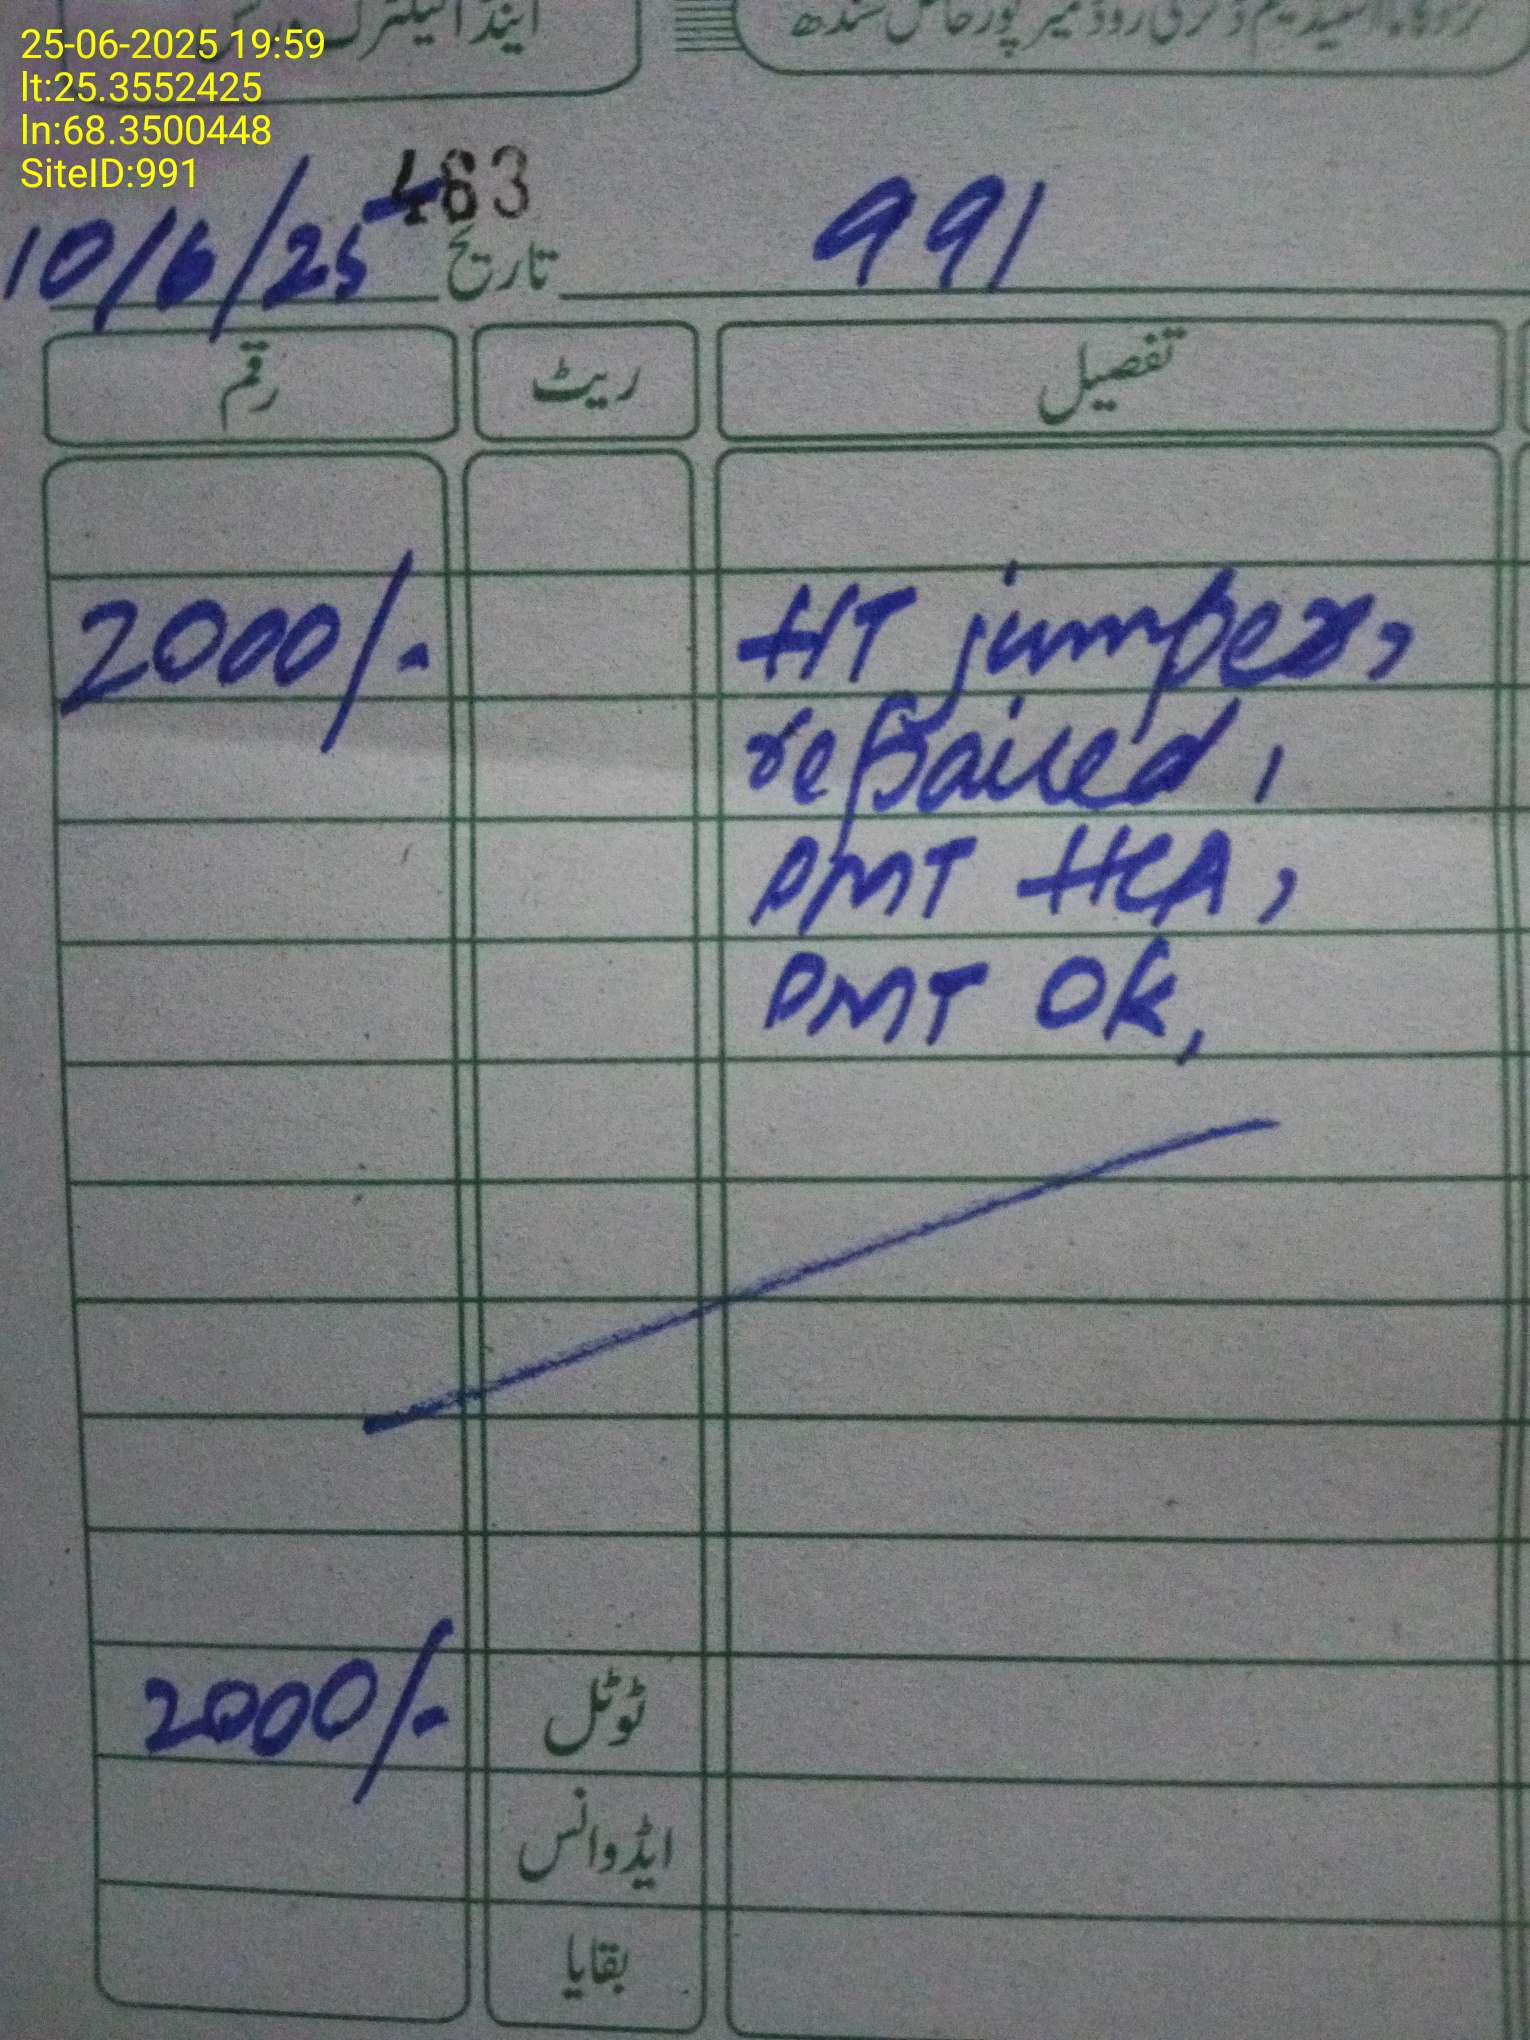 25-06-2025 19:59
lt:25.3552425
ln:68.3500448
SiteID:991
اینڈ الیکٹرک
ڈگری روڈ میرپورخاص سندھ
463
991
تاریخ 10/6/25
تفصیل ریٹ رقم
HT jumper, 2000/-
repaired,
PMT HCA,
PMT Ok,
ٹوٹل 2000/-
ایڈوانس
بقایا